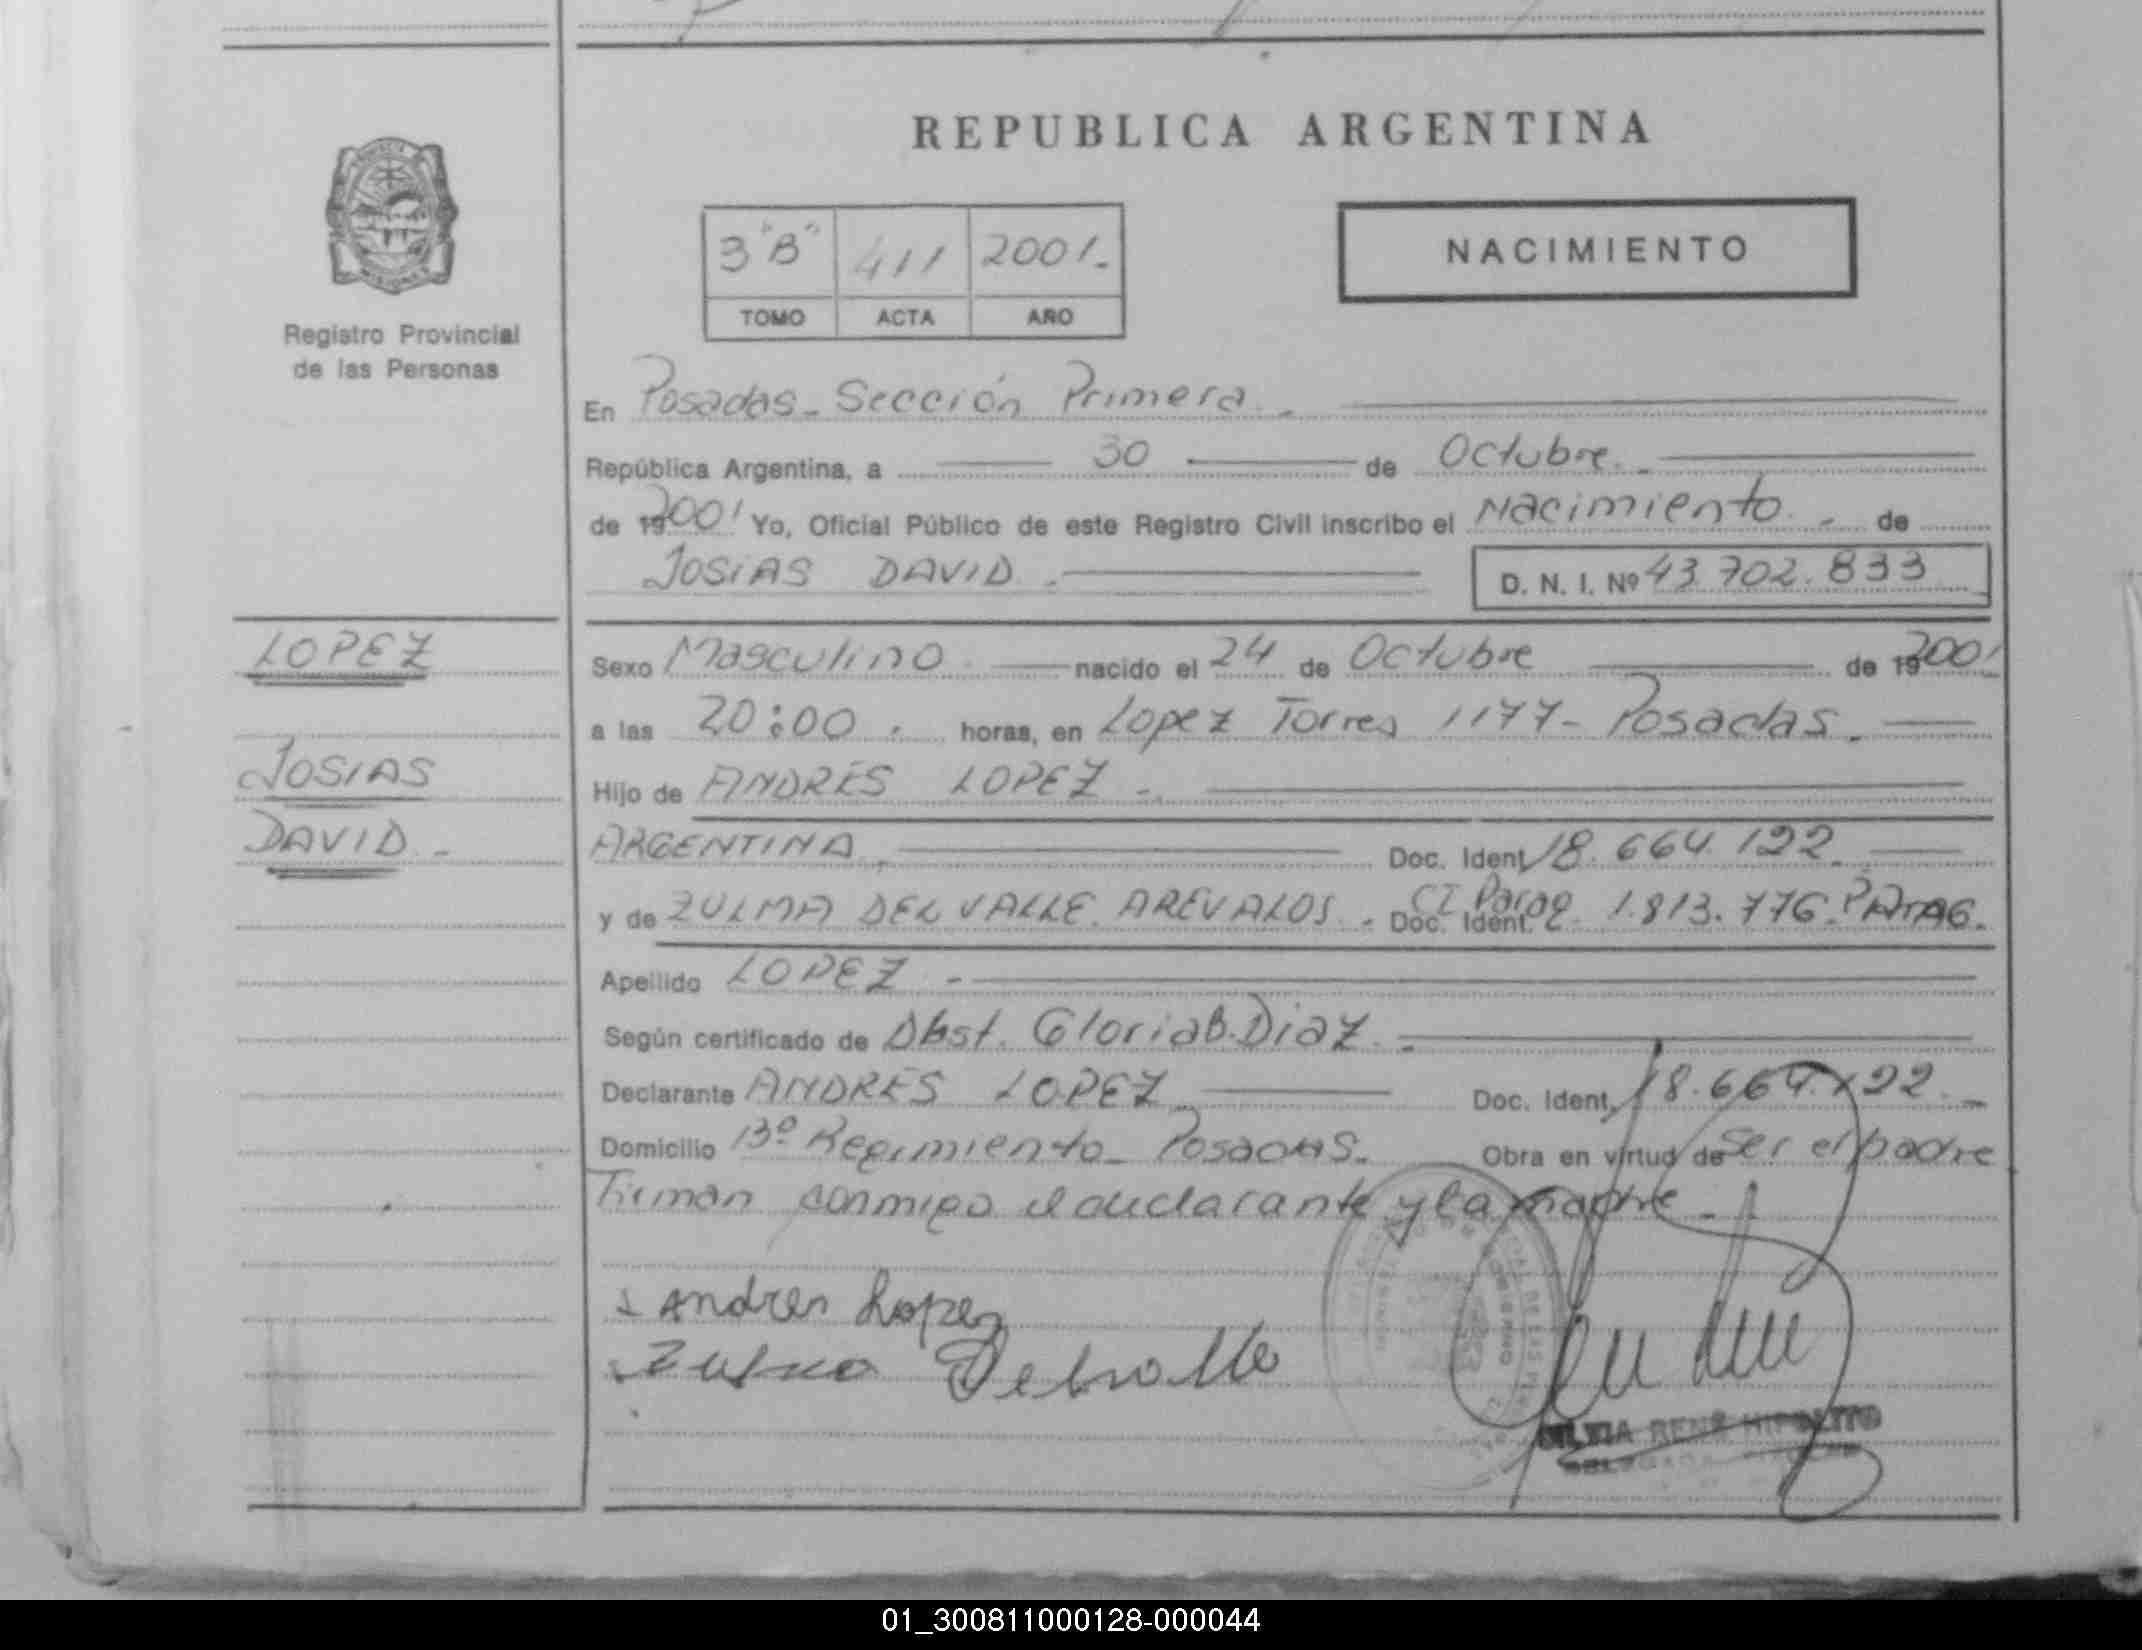 REPUBLICA ARGENTINA
3 "B" 411 2001.-
TOMO ACTA AÑO
NACIMIENTO
Registro Provincial
de las Personas
En Posadas - Sección Primera.-
República Argentina, a 30 de Octubre.-
de 2001 Yo, Oficial Público de este Registro Civil inscribo el Nacimiento.- de
JOSIAS DAVID.- D. N. I. Nº 43.702.833
LOPEZ
JOSIAS
DAVID.-
Sexo Masculino.- nacido el 24 de Octubre de 2001
a las 20:00.- horas, en Lopez Torres 1177- Posadas.-
Hijo de ANDRÉS LOPEZ.-
ARGENTINA.- Doc. Ident. 18.664.122.-
y de ZULMA DEL VALLE AREVALOS.- Doc. Ident. CI Parag. 1.813.776. PARAG.
Apellido LOPEZ.-
Según certificado de Obst. Gloria B. Diaz.-
Declarante ANDRES LOPEZ.- Doc. Ident. 18.664.122.-
Domicilio 13º Regimiento - Posadas.- Obra en virtud de Ser el padre
Firman conmigo el declarante y la madre.-
Andres Lopez
Zulma Delvalle
SILVIA RENÉ HIPOLITO